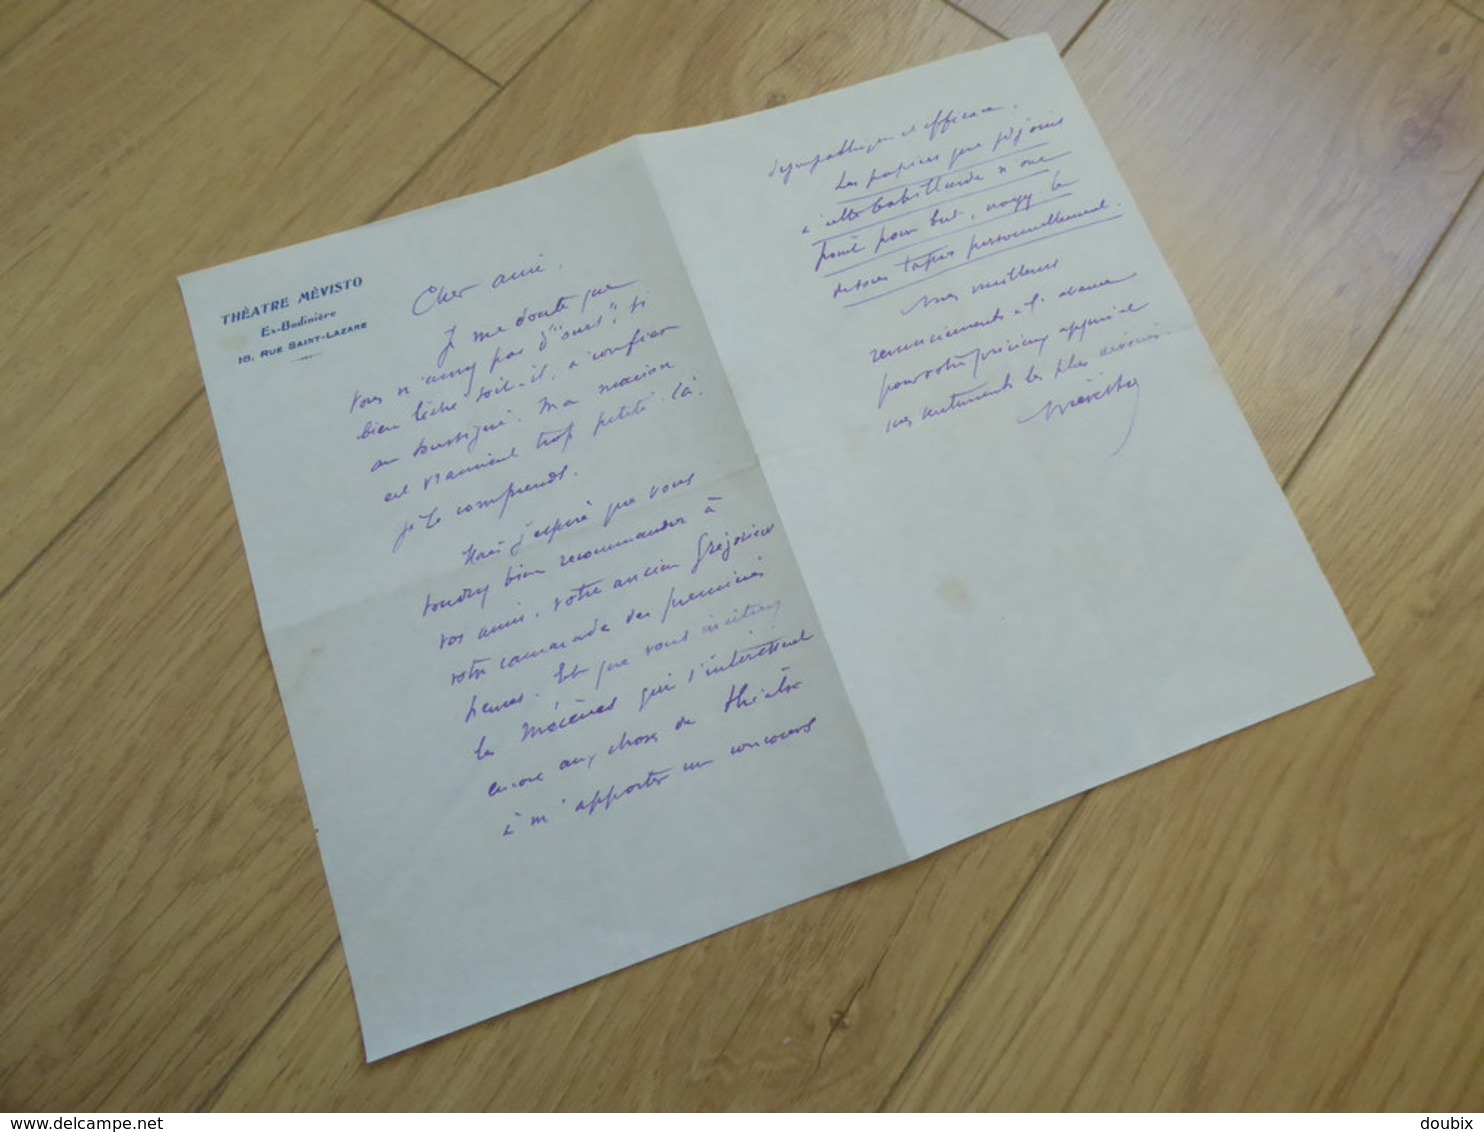 THÉATRE MÉVISTO
Ex-Bodinière
18, RUE SAINT-LAZARE
Cher ami,
Je me doute que
vous n'aurez pas d'"ours", si
bien léché soit-il, à confier
au soussigné. Ma maison
est vraiment trop petite. Là,
je le comprends.
Mais j'espère que vous
voudrez bien recommander à
vos amis, votre ancien
votre camarade des premières
heures. Et que vous inciterez
les Mécènes qui s'intéressent
encore aux choses de théâtre
à m'apporter un concours
sympathique et efficace.
Les papiers que je joins
à cette babillarde n'ont
point pour but,
personnellement.
mes meilleurs
remerciements à l'avance
pour votre précieux appui et
mes sentiments les plus
Mévisto
doubix
delcampe.net